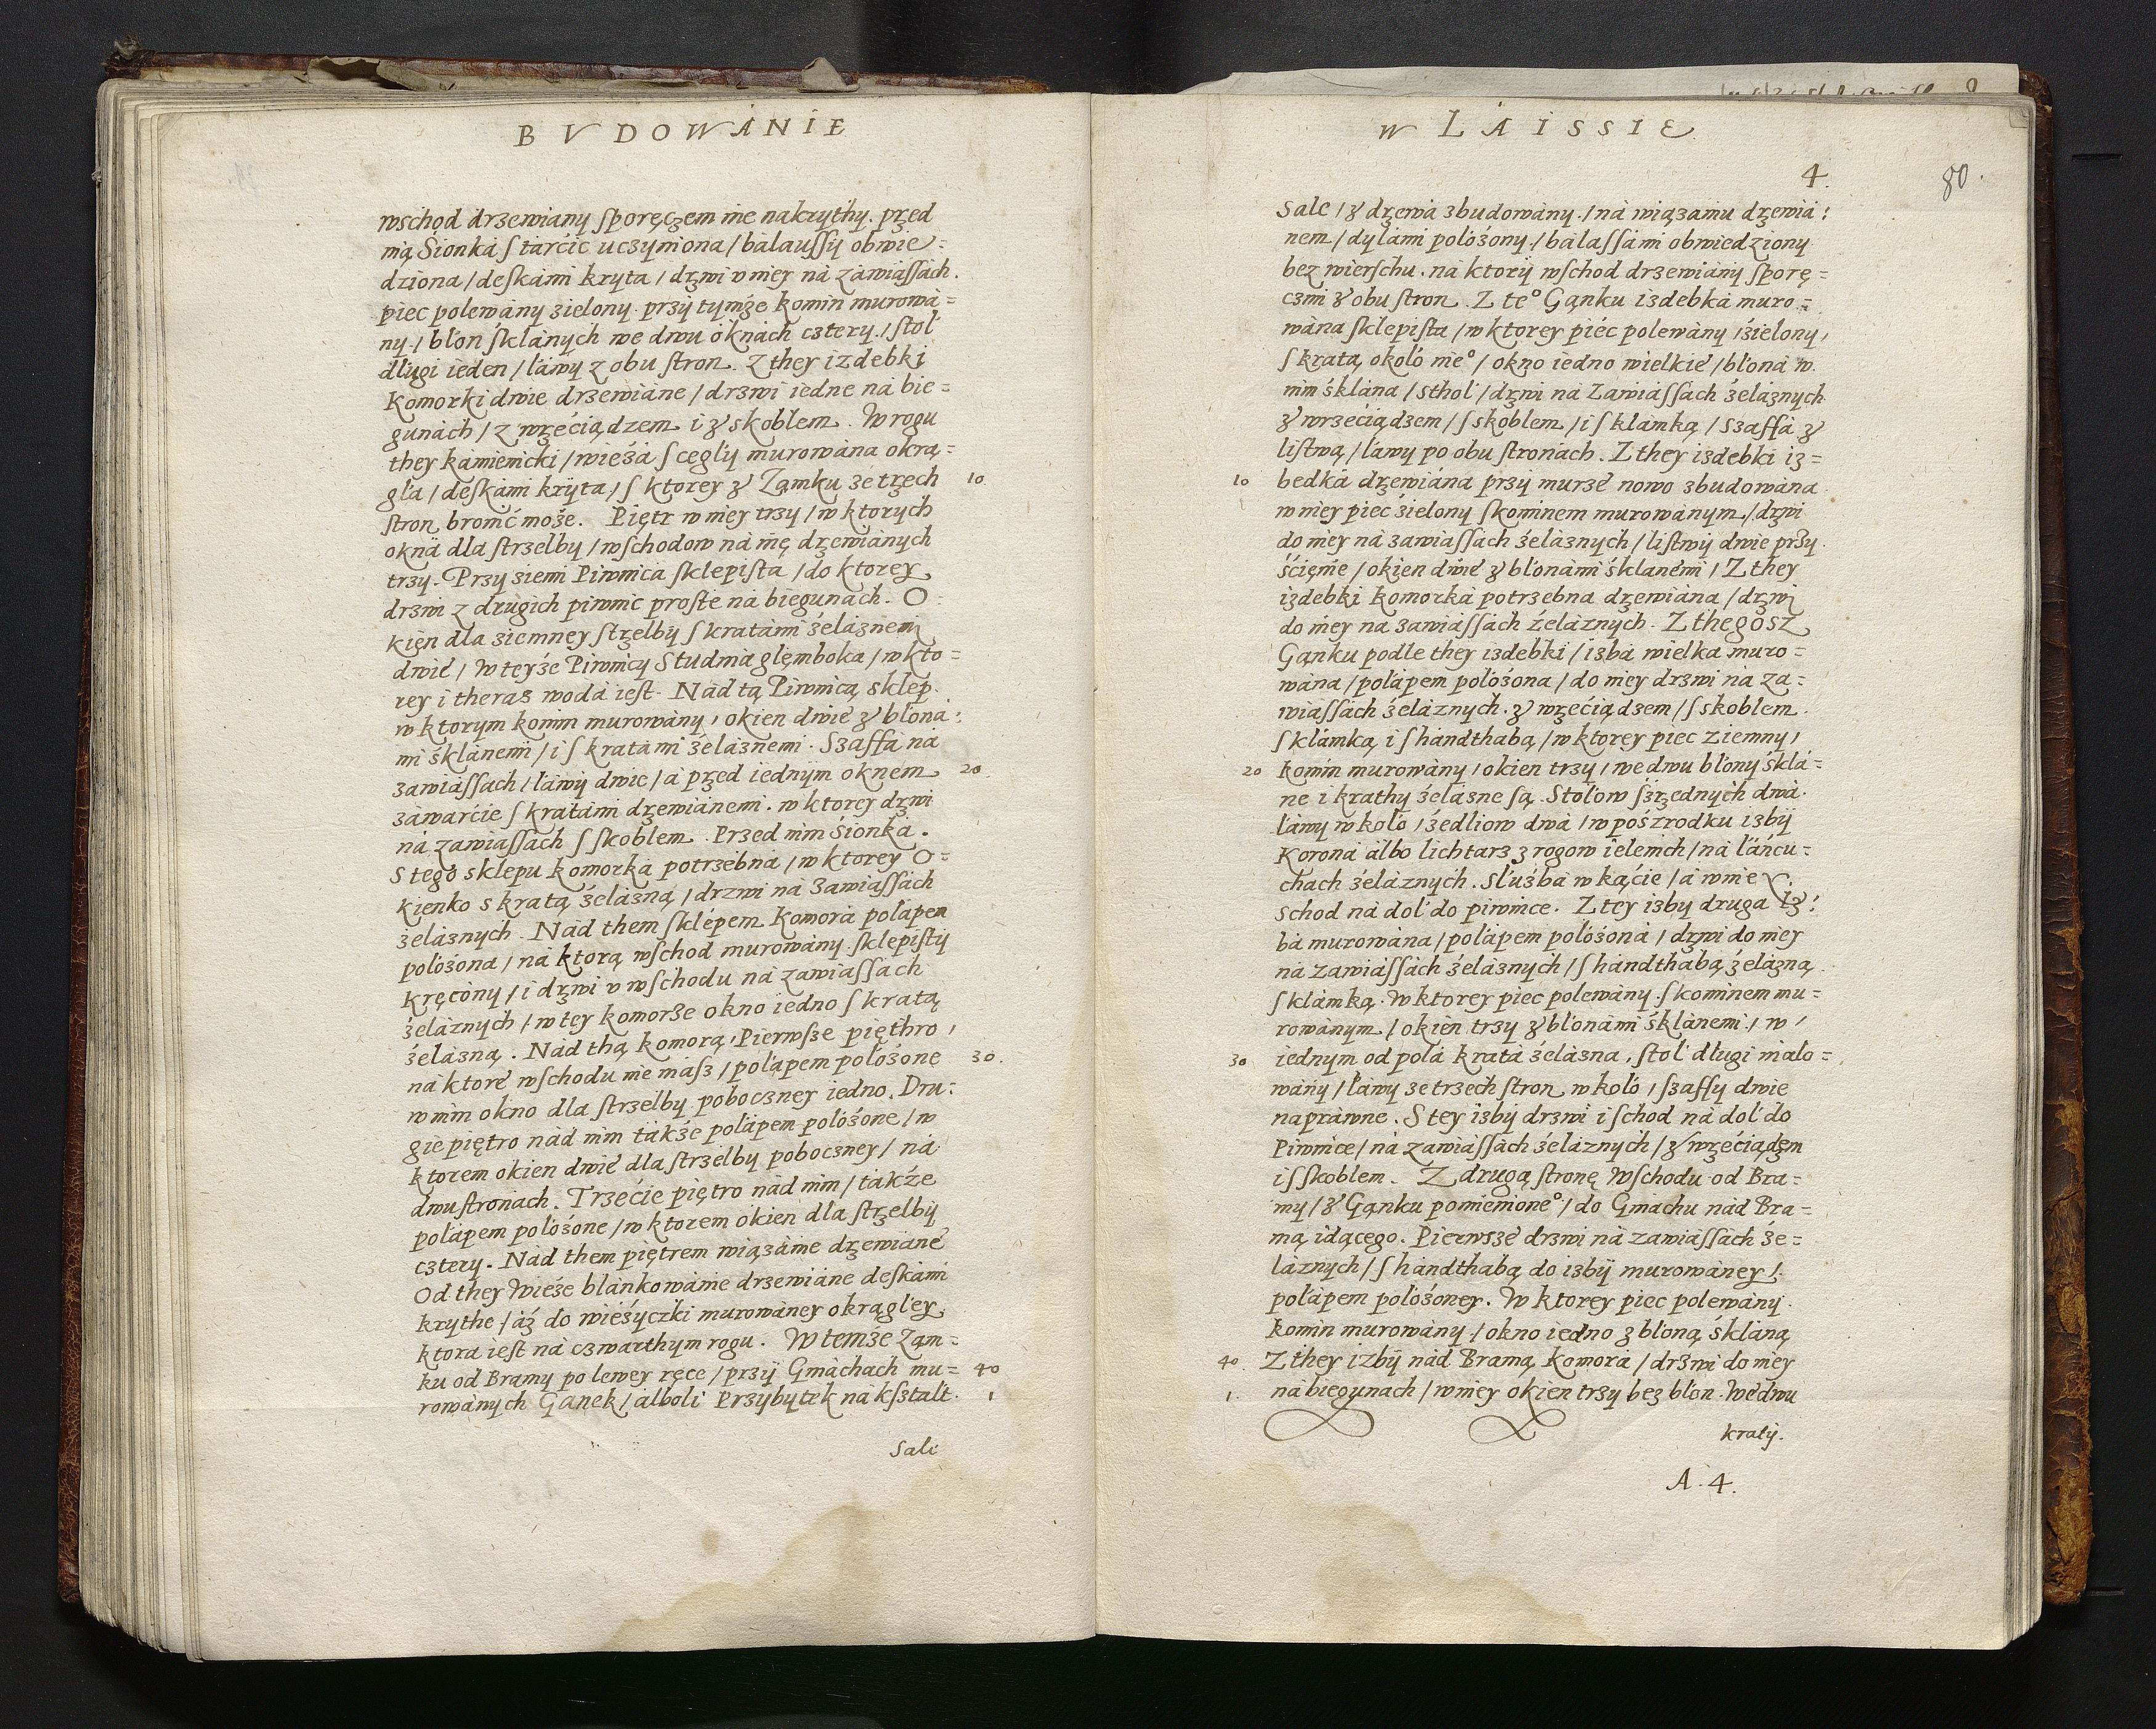 BVDOWÁNIE
wschod drzewiany sporęczem nie nakrythy. przed
nią Sionká s tarcic uczyniona / bálaussy obwie=
dziona / deskámi kryta / drzwi v niey ná záwiássách.
piec polewány zielony. przy tymże komin murowá=
ny. / błon sklánych we dwu oknách cztery. / stoł
długi ieden / łáwy z obu stron. Z they izdebki
Komorki dwie drzewiáne / drzwi iedne ná bie=
gunách / z wrzéciądzem i z skoblem. W rogu
they kámienicki / wieżá s cegły murowána okrą=
gła / deskámi kryta / s ktorey z Zamku ze trzech
10.
stron bronić może. Piętr w niey trzy / w ktorych
okná dla strzelby / wschodow ná nię drzewiánych
trzy. Przy ziemi Piwnicá sklepista / do ktorey
drzwi z drugich piwnic proste ná biegunách. O=
kien dla ziemney strzelby s kratámi żeláznemi
dwie / W teyże Piwnicy Studniá głęmboka / w kto=
rey i theraz wodá iest. Nád tą Piwnicą sklep.
w ktorym komin murowány, okien dwié z błoná=
mi sklánemi / i s kratámi żeláznemi. Száffá ná
záwiássách / łáwy dwie / á przed iednym oknem
20.
záwárcie s kratámi drzewiánemi. w ktorey drzwi
ná záwiássách s skoblem. Przed nim Sionká.
S tego sklepu komorká potrzebna / w ktorey O=
kienko s kratą żelázną / drzwi ná záwiássách
żeláznych. Nád them sklépem Komorá połápem
położona / ná ktorą wschod murowány. sklepisty
kręcony / i drzwi v wschodu ná záwiássách
żeláznych / w tey komorze okno iedno s kratą
żelázną. Nád thą komorą, Pierwsze pięthro,
ná ktoré wschodu nie mász / połápem położone
30.
w nim okno dla strzelby poboczney iedno. Dru=
gie piętro nád nim tákże połápem położone / w
ktorem okien dwié dla strzelby poboczney / ná
dwu stronách. Trzécie piętro nád nim / tákże
połápem położone / w ktorem okien dla strzelby
cztery. Nád them piętrem wiązánie drzewiáné
Od they Wieże blánkowánie drzewiáne deskámi
krythe / áż do wieżyczki murowáney okrągłey,
ktora iest ná czwarthym rogu. W temże Zam=
ku od Bramy po lewey ręce / przy Gmáchách mu=
40
rowánych Gánek / álboli Przybytek ná kształt.
1
Sale
W LÁISSIE
4.
80.
Sale / z drzewá zbudowány. / ná wiązániu drzewiá=
nem / dylámi położony. / bálássámi obwiedziony
bez wierschu. ná ktory wschod drzewiány sporę=
czmi z obu stron. Z te° Gąnku izdebká muro=
wána sklepista / w ktorey piéc polewány, zielony,
s kratą około nie° / okno iedno wielkié / błoná w
nim sklána / sthoł / drzwi ná Zawiássách żeláznych
z wrzeciądzem / s skoblem / i s klámką / Száffá z
listwą / łáwy po obu stronách. Z they izdebki iz=
bedká drzewiána przy murzé nowo zbudowána
10
w niey piec zielony s kominem murowánym. / drzwi
do niey ná zawiássách żeláznych / listwy dwie przy
ścięnie / okien dwié z błonámi sklánémi / Z they
izdebki komorká potrzebna drzewiána / drzwi
do niey ná zawiássách żeláznych. Z thegosz
Gąnku podle they izdebki / izbá wielka muro=
wána / połápem położona / do niey drzwi ná zá=
wiássách żeláznych. z wrzéciądzem / s skoblem.
s klámką i s hándthabą / w ktorey piec ziemny,
komin murowány, okien trzy, we dwu błony sklá=
20
ne i krathy żelázne są. Stołow szrzednych dwá.
łáwy w koło, zedliow dwá / w poszrodku izby
Koroná álbo lichtarz z rogow ielenich / ná łáńcu=
chách żeláznych. Służbá w kącie / á w nie
schod ná doł do piwnice. Z tey izby druga iz=
bá murowána / połápem położoná / drzwi do niey
ná zawiássách żeláznych / s hándthabą żelázną
s klámką. W ktorey piec polewány. s kominem mu=
rowánym / okien trzy z błonámi sklánemi. / w
iednym od polá kratá żelázna, stoł długi málo=
30
wány / łáwy ze trzech stron w koło / szaffy dwie
nápráwne. S tey izby drzwi i schod ná doł do
Piwnice / ná zawiássách żeláznych / z wrzeciądzem
i s skoblem. Z drugą stronę Wschodu od Bra=
my / z Gąnku pomienione° / do Gmáchu nád Bra=
mą idącego. Pierwszé drzwi ná zawiássách że=
láznych / s hándthabą do izby murowáney /.
połápem położoney. W ktorey piec polewány.
komin murowány / okno iedno z błoną sklàną
Z they izby nád Bramą Komorá / drzwi do niey
40.
ná biegunách / w niey okien trzy bez błon. We dwu
1.
kraty.
A. 4.